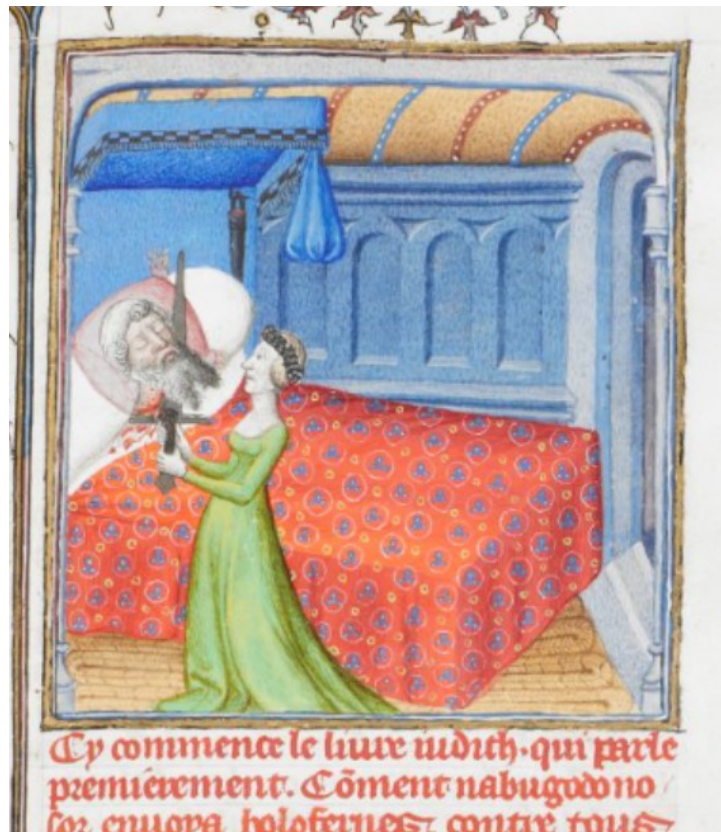 Cy commence le liure iudith. qui parle
premierement. Cōment nabugodono
sor enuoya holofernes contre tous